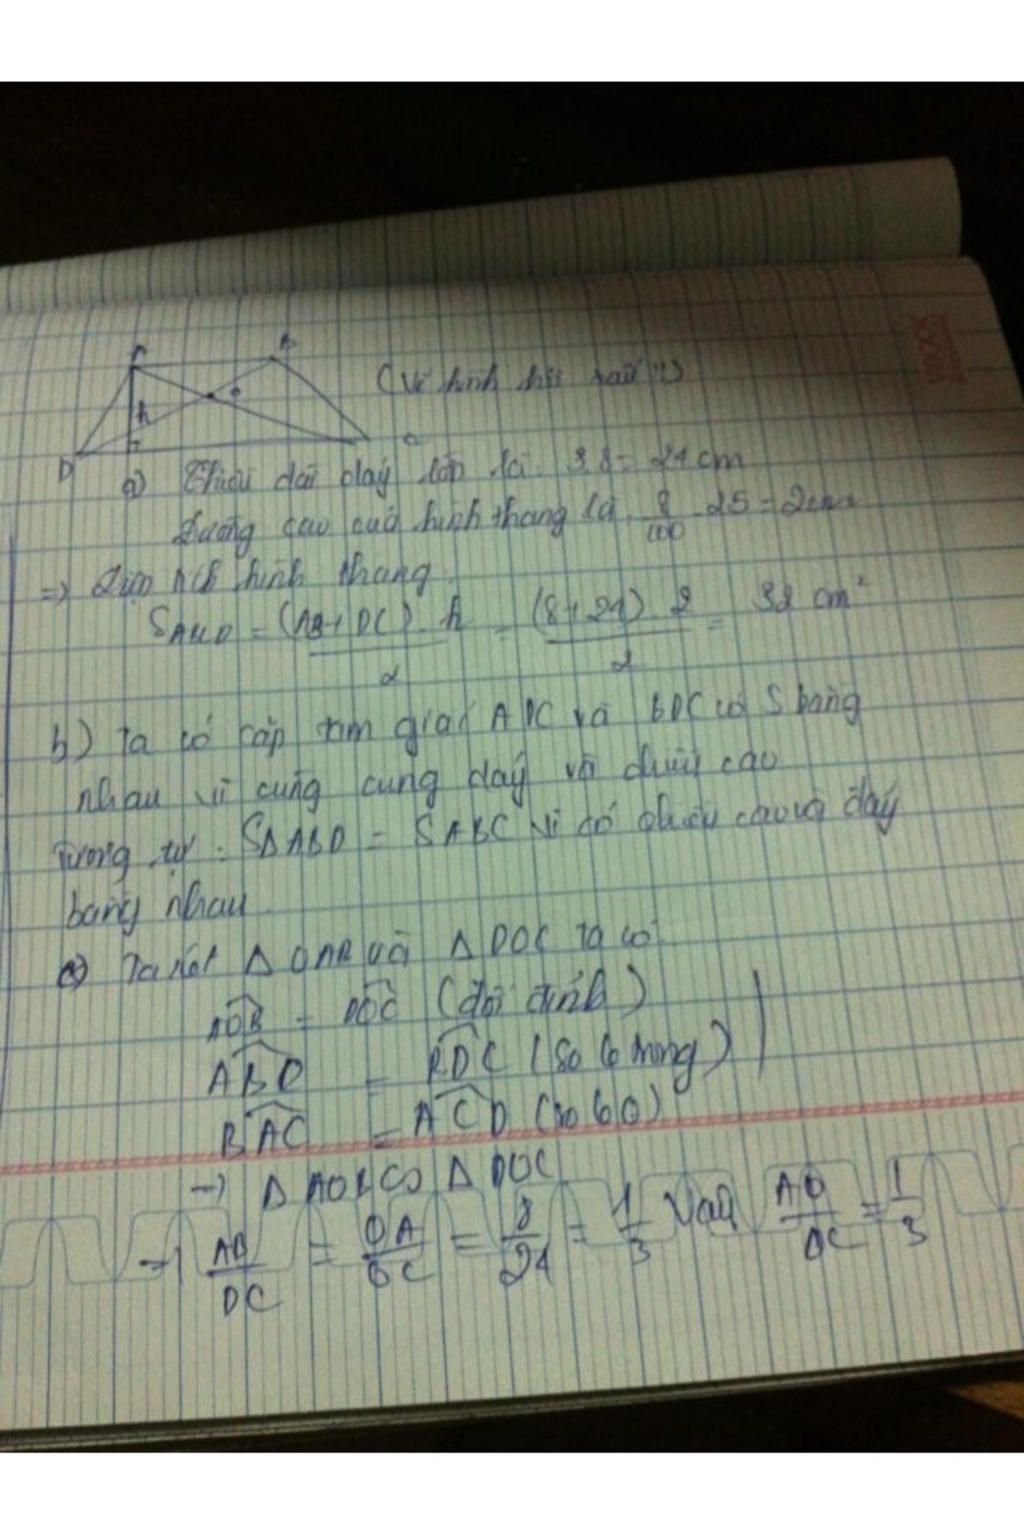 A B
(Vẽ hình hơi xấu :))
h O
D C
a) Chiều dài đáy lớn là: 3.8 = 24 cm
Đường cao của hình thang là 8/100 . 25 = 2 cm
=> Diện tích hình thang
SABCD = (AB + DC) . h / 2 = (8 + 24) . 2 / 2 = 32 cm²
b) Ta có cặp tam giác ADC và BDC có S bằng
nhau vì cùng chung đáy và chiều cao
Tương tự : SΔABD = SABC vì có chiều cao và đáy
bằng nhau.
c) Ta xét Δ OAB và Δ DOC ta có
AOB = DOC (đối đỉnh)
ABD = BDC (so le trong)
BAC = ACD (so le)
-> Δ AOB ∽ Δ DOC
-> AB/DC = OA/OC = 8/24 = 1/3 Vậy AO/OC = 1/3